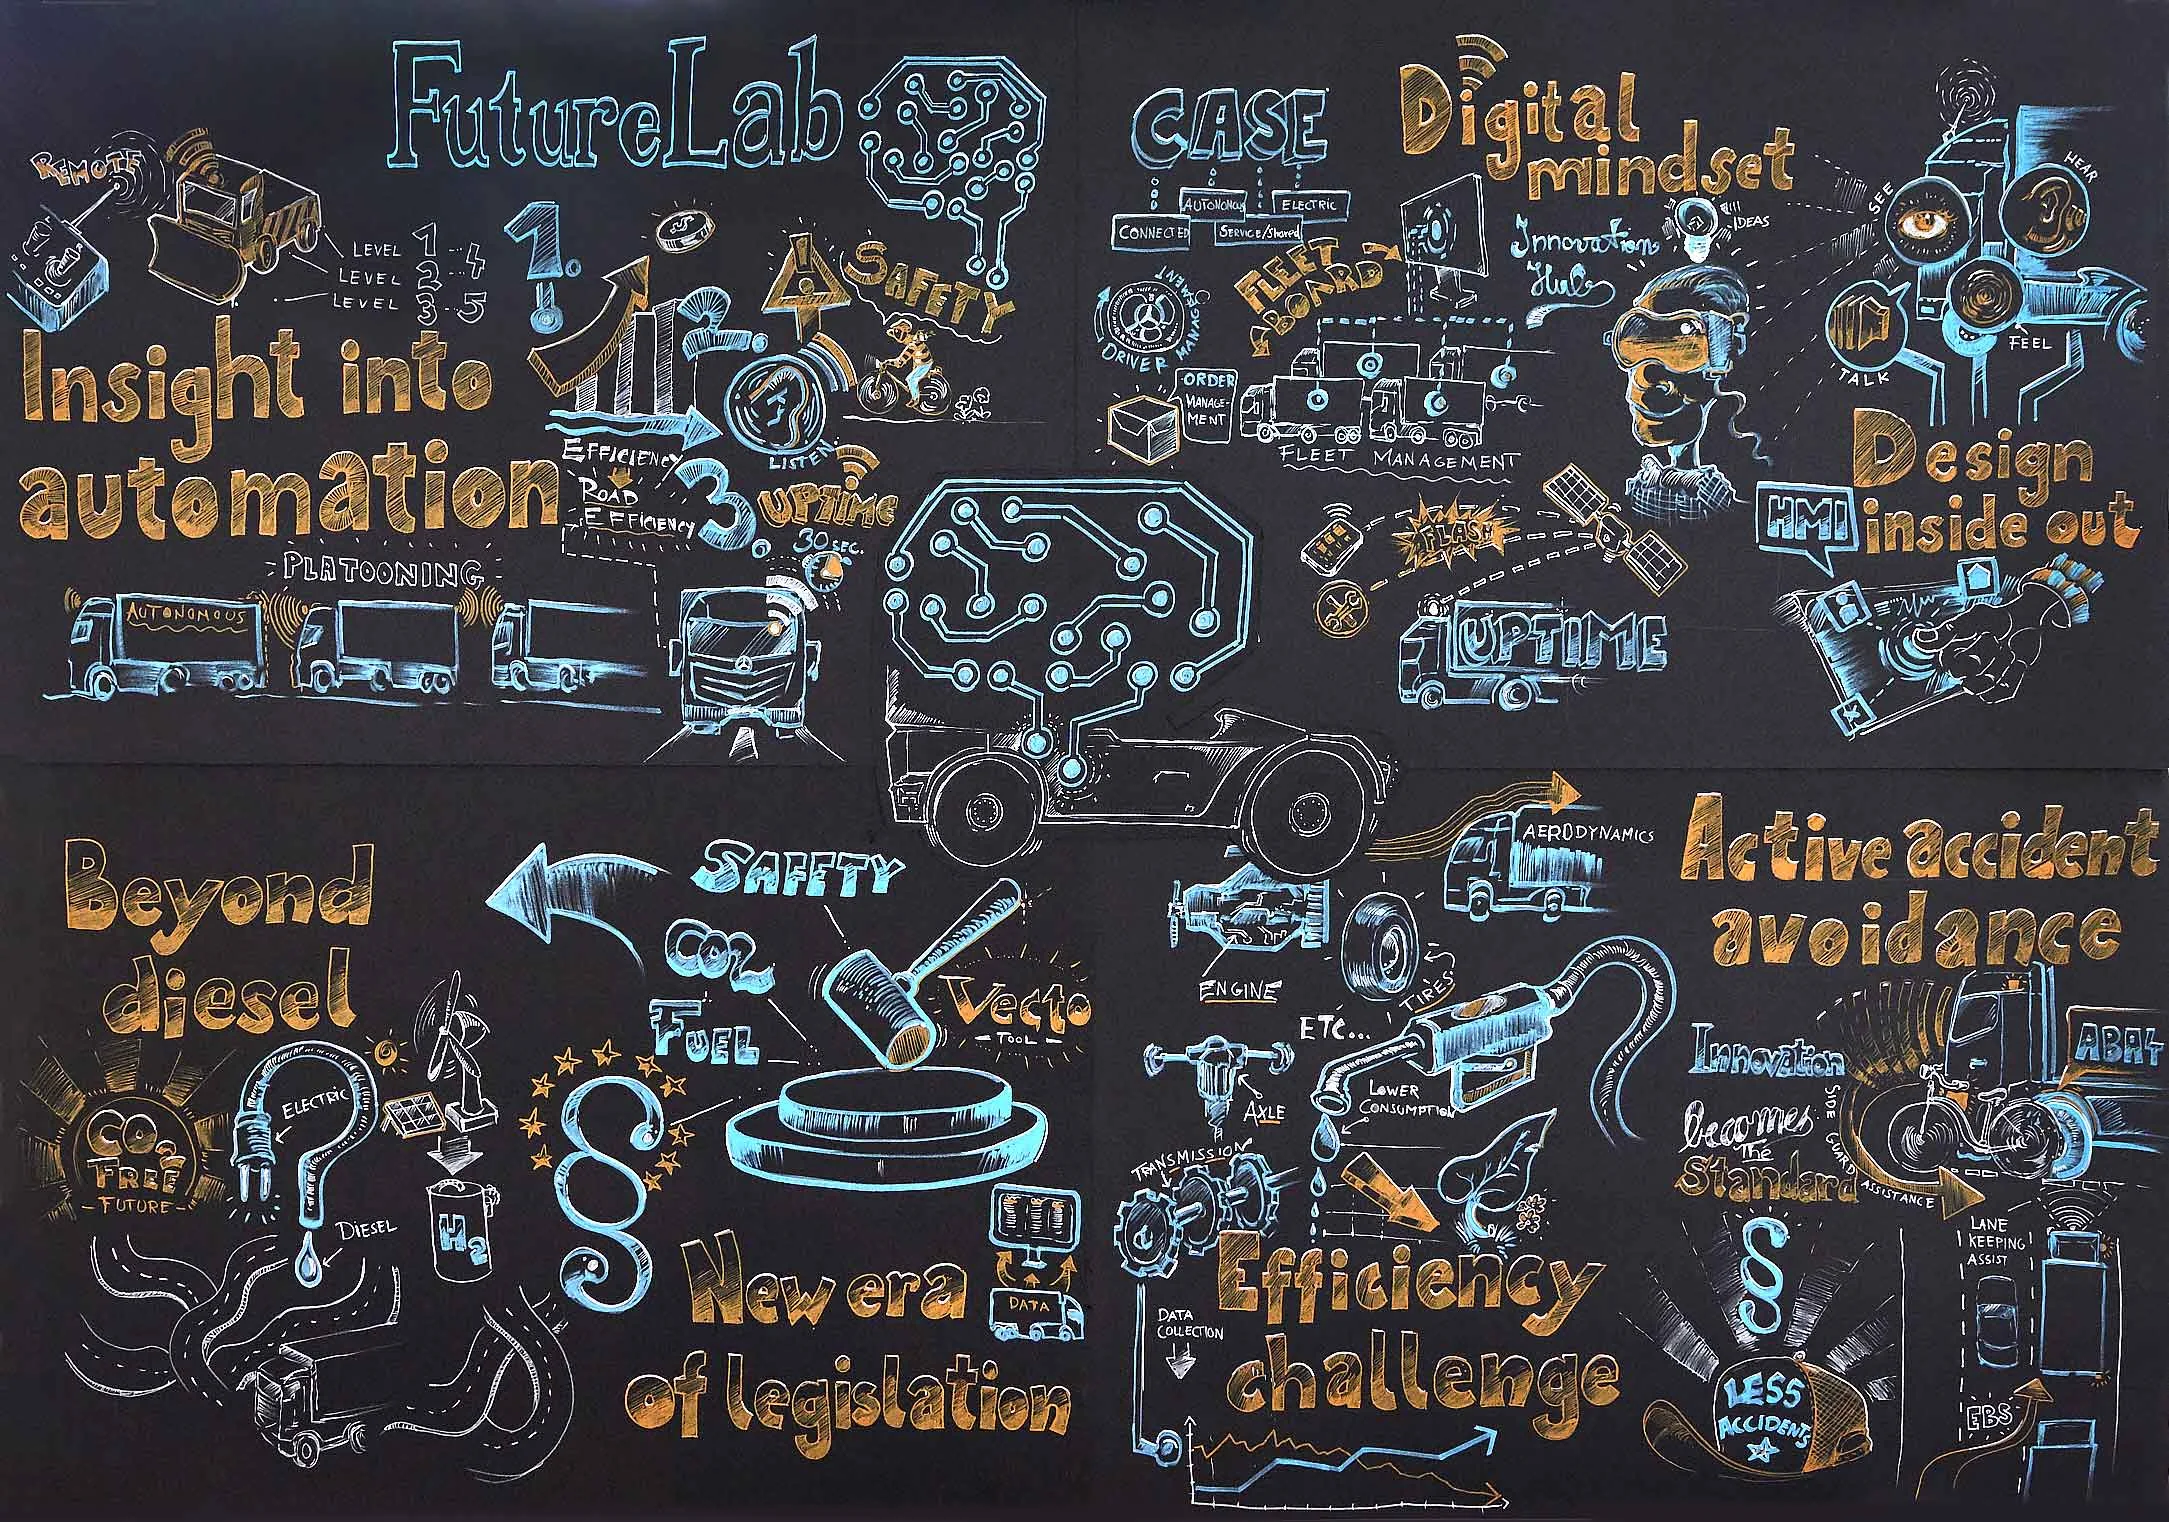 FutureLab
REMOTE
LEVEL 1...4
LEVEL 2...4
LEVEL 3...5
Insight into
automation
1.
EFFICIENCY
ROAD
EFFICIENCY
2.
SAFETY
LISTEN
3.
UPTIME
30 SEC.
PLATOONING
AUTONOMOUS
CASE
CONNECTED
AUTONOMOUS
SERVICE/Shared
ELECTRIC
Digital
mindset
FLEET
BOARD
DRIVER MANAGEMENT
ORDER
MANAGE-
MENT
FLEET MANAGEMENT
Innovation
Hub
IDEAS
FLASH
UPTIME
SEE
HEAR
FEEL
TALK
Design
inside out
HMI
Beyond
diesel
CO2
FREE
-FUTURE-
ELECTRIC
DIESEL
H2
SAFETY
CO2
FUEL
Vecto
- TOOL -
§
DATA
New era
of legislation
AERODYNAMICS
ENGINE
TIRES
ETC...
AXLE
TRANSMISSION
LOWER
CONSUMPTION
Efficiency
challenge
DATA
COLLECTION
Active accident
avoidance
Innovation
becomes
The
Standard
ABA4
SIDE GUARD ASSISTANCE
LANE
KEEPING
ASSIST
EBS
§
LESS
ACCIDENTS